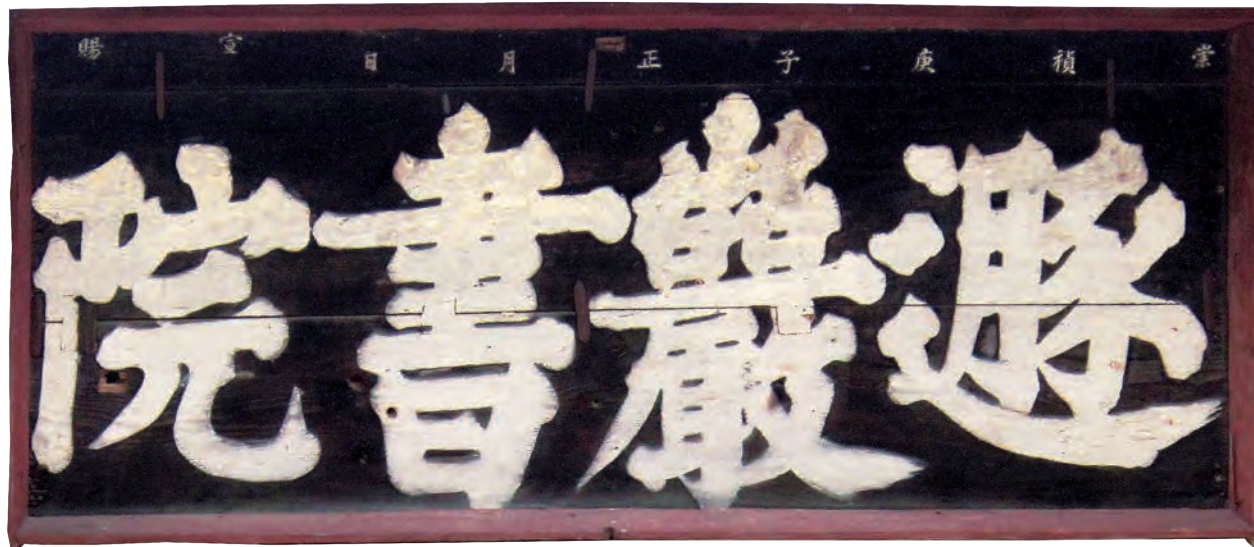 崇禎庚子正月日 宣賜
遯巖書院